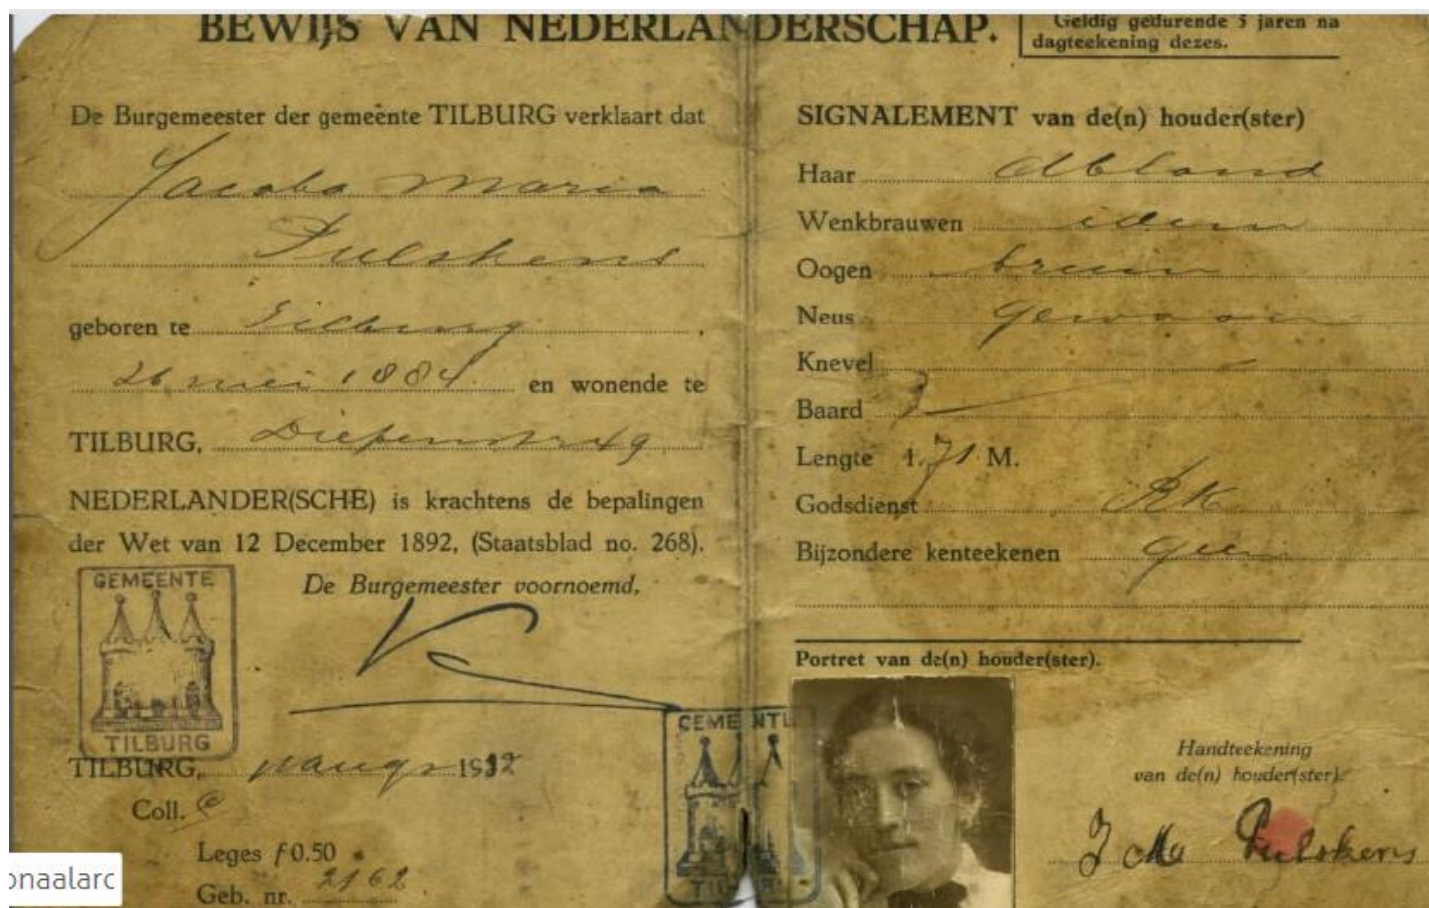 BEWIJS VAN NEDERLANDERSCHAP.
Geldig gedurende 5 jaren na
dagteekening dezes.
De Burgemeester der gemeente TILBURG verklaart dat
Jacoba Maria
Pulskens
geboren te Tilburg,
26 mei 1884 en wonende te
TILBURG,
NEDERLANDER(SCHE) is krachtens de bepalingen
der Wet van 12 December 1892, (Staatsblad no. 268).
De Burgemeester voornoemd,
GEMEENTE
TILBURG
TILBURG, 19
Coll.
Leges f 0.50
Geb. nr. 2162
GEMEENTE
TILBURG
SIGNALEMENT van de(n) houder(ster)
Haar dblond
Wenkbrauwen idem
Oogen bruin
Neus gewoon
Knevel
Baard
Lengte 1.71 M.
Godsdienst RK
Bijzondere kenteekenen geen
Portret van de(n) houder(ster).
Handteekening
van de(n) houder(ster).
J M Pulskens
onaalarc